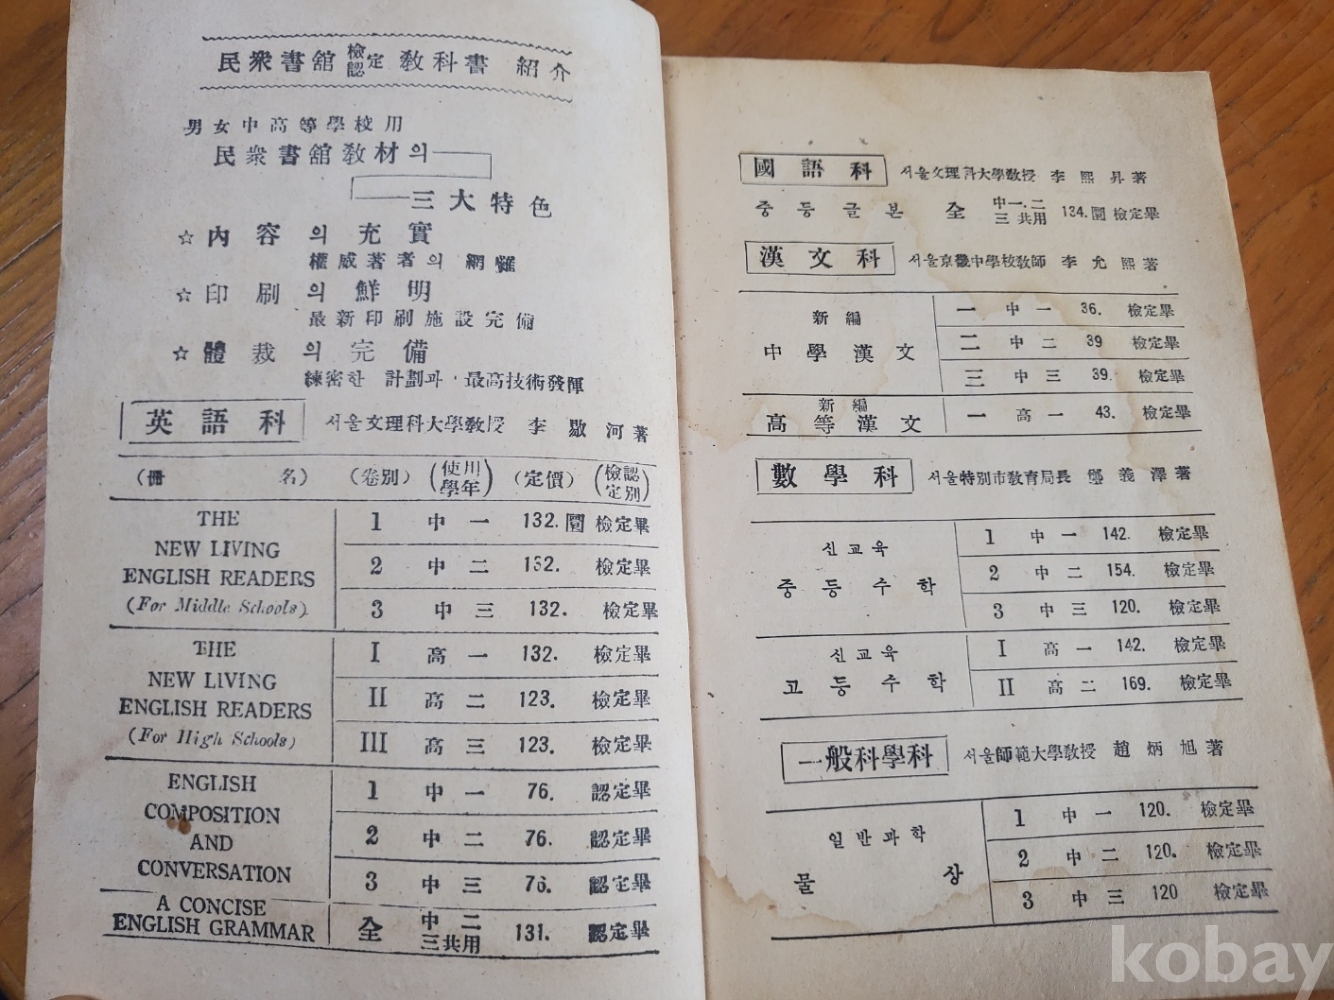 民衆書舘 檢認定 教科書 紹介
男女中高等學校用
民衆書舘教材의
三大特色
☆ 內容의 充實
權威著者의 網羅
☆ 印刷의 鮮明
最新印刷施設完備
☆ 體裁의 完備
練密한 計劃과 · 最高技術發揮
英語科 서울文理科大學教授 李敭河著
(冊名) (卷別) (使用學年) (定價) (檢認定別)
THE
NEW LIVING
ENGLISH READERS
(For Middle Schools)
1 中一 132.圜 檢定畢
2 中二 132. 檢定畢
3 中三 132. 檢定畢
THE
NEW LIVING
ENGLISH READERS
(For High Schools)
I 高一 132. 檢定畢
II 高二 123. 檢定畢
III 高三 123. 檢定畢
ENGLISH
COMPOSITION
AND
CONVERSATION
1 中一 76. 認定畢
2 中二 76. 認定畢
3 中三 76. 認定畢
A CONCISE
ENGLISH GRAMMAR
全 中二三共用 131. 認定畢
國語科 서울文理科大學教授 李熙昇著
중등글본 全 中一.二三共用 134.圜 檢定畢
漢文科 서울京畿中學校教師 李允熙著
新編
中學漢文
一 中一 36. 檢定畢
二 中二 39 檢定畢
三 中三 39. 檢定畢
新編
高等漢文 一 高一 43. 檢定畢
數學科 서울特別市教育局長 義澤著
신교육
중등수학
1 中一 142. 檢定畢
2 中二 154. 檢定畢
3 中三 120. 檢定畢
신교육
고등수학
I 高一 142. 檢定畢
II 高二 169. 檢定畢
一般科學科 서울師範大學教授 趙炳旭著
일반과학
물상
1 中一 120. 檢定畢
2 中二 120. 檢定畢
3 中三 120 檢定畢
kobay